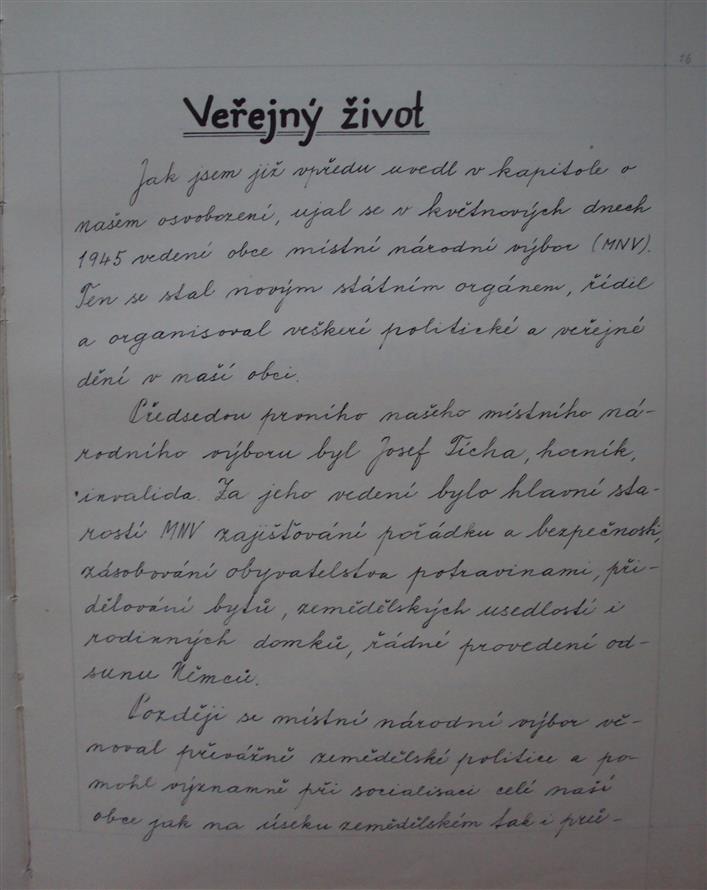 16
Veřejný život
Jak jsem již vpředu uvedl v kapitole o
našem osvobození, ujal se v květnových dnech
1945 vedení obce místní národní výbor (MNV).
Ten se stal novým státním orgánem, řídil
a organisoval veškeré politické a veřejné
dění v naší obci.
Předsedou prvního našeho místního ná-
rodního výboru byl Josef Tícha, horník,
invalida. Za jeho vedení bylo hlavní sta-
rostí MNV zajišťování pořádku a bezpečnosti,
zásobování obyvatelstva potravinami, při-
dělování bytů, zemědělských usedlostí i
rodinných domků, řádné provedení od-
sunu Němců.
Později se místní národní výbor vě-
noval převážně zemědělské politice a po-
mohl významně při socialisaci celé naší
obce jak na úseku zemědělském tak i prů-